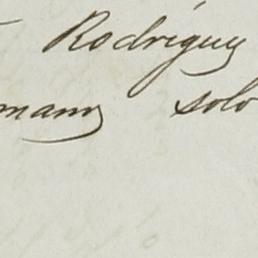 Rodriguez
mann solo